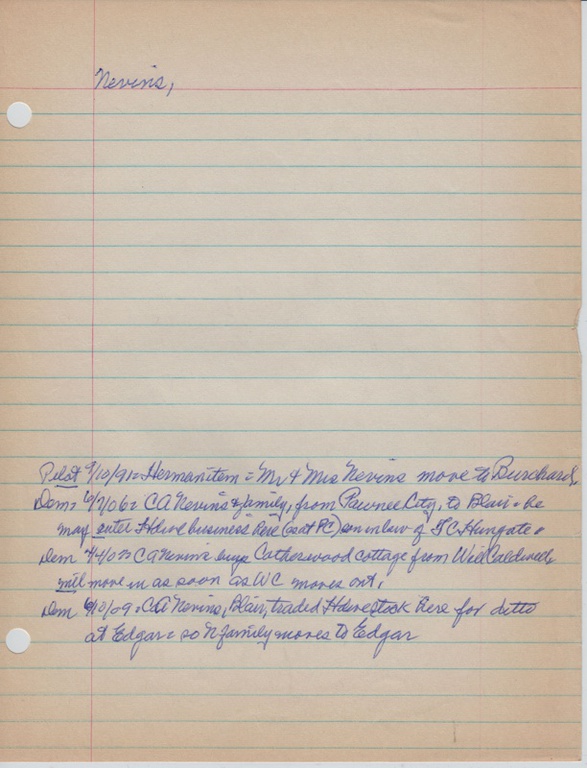 Nevins,
Pilot 9/10/91= Herman item = Mr & Mrs Nevins move to Burchard,
Dem= 6/7/06= CA Nevins & family, from Pawnee City, to Blair = he
may enter Hdwe business here (as at PC) son in law of T C Hungate =
Dem 4/4/07= CA Nevins buys Catherwood cottage from Will Caldwell,
will move in as soon as WC moves out,
Dem 6/10/09= CA Nevins, Blair, traded Hdwe stock here for ditto
at Edgar = so N family moves to Edgar